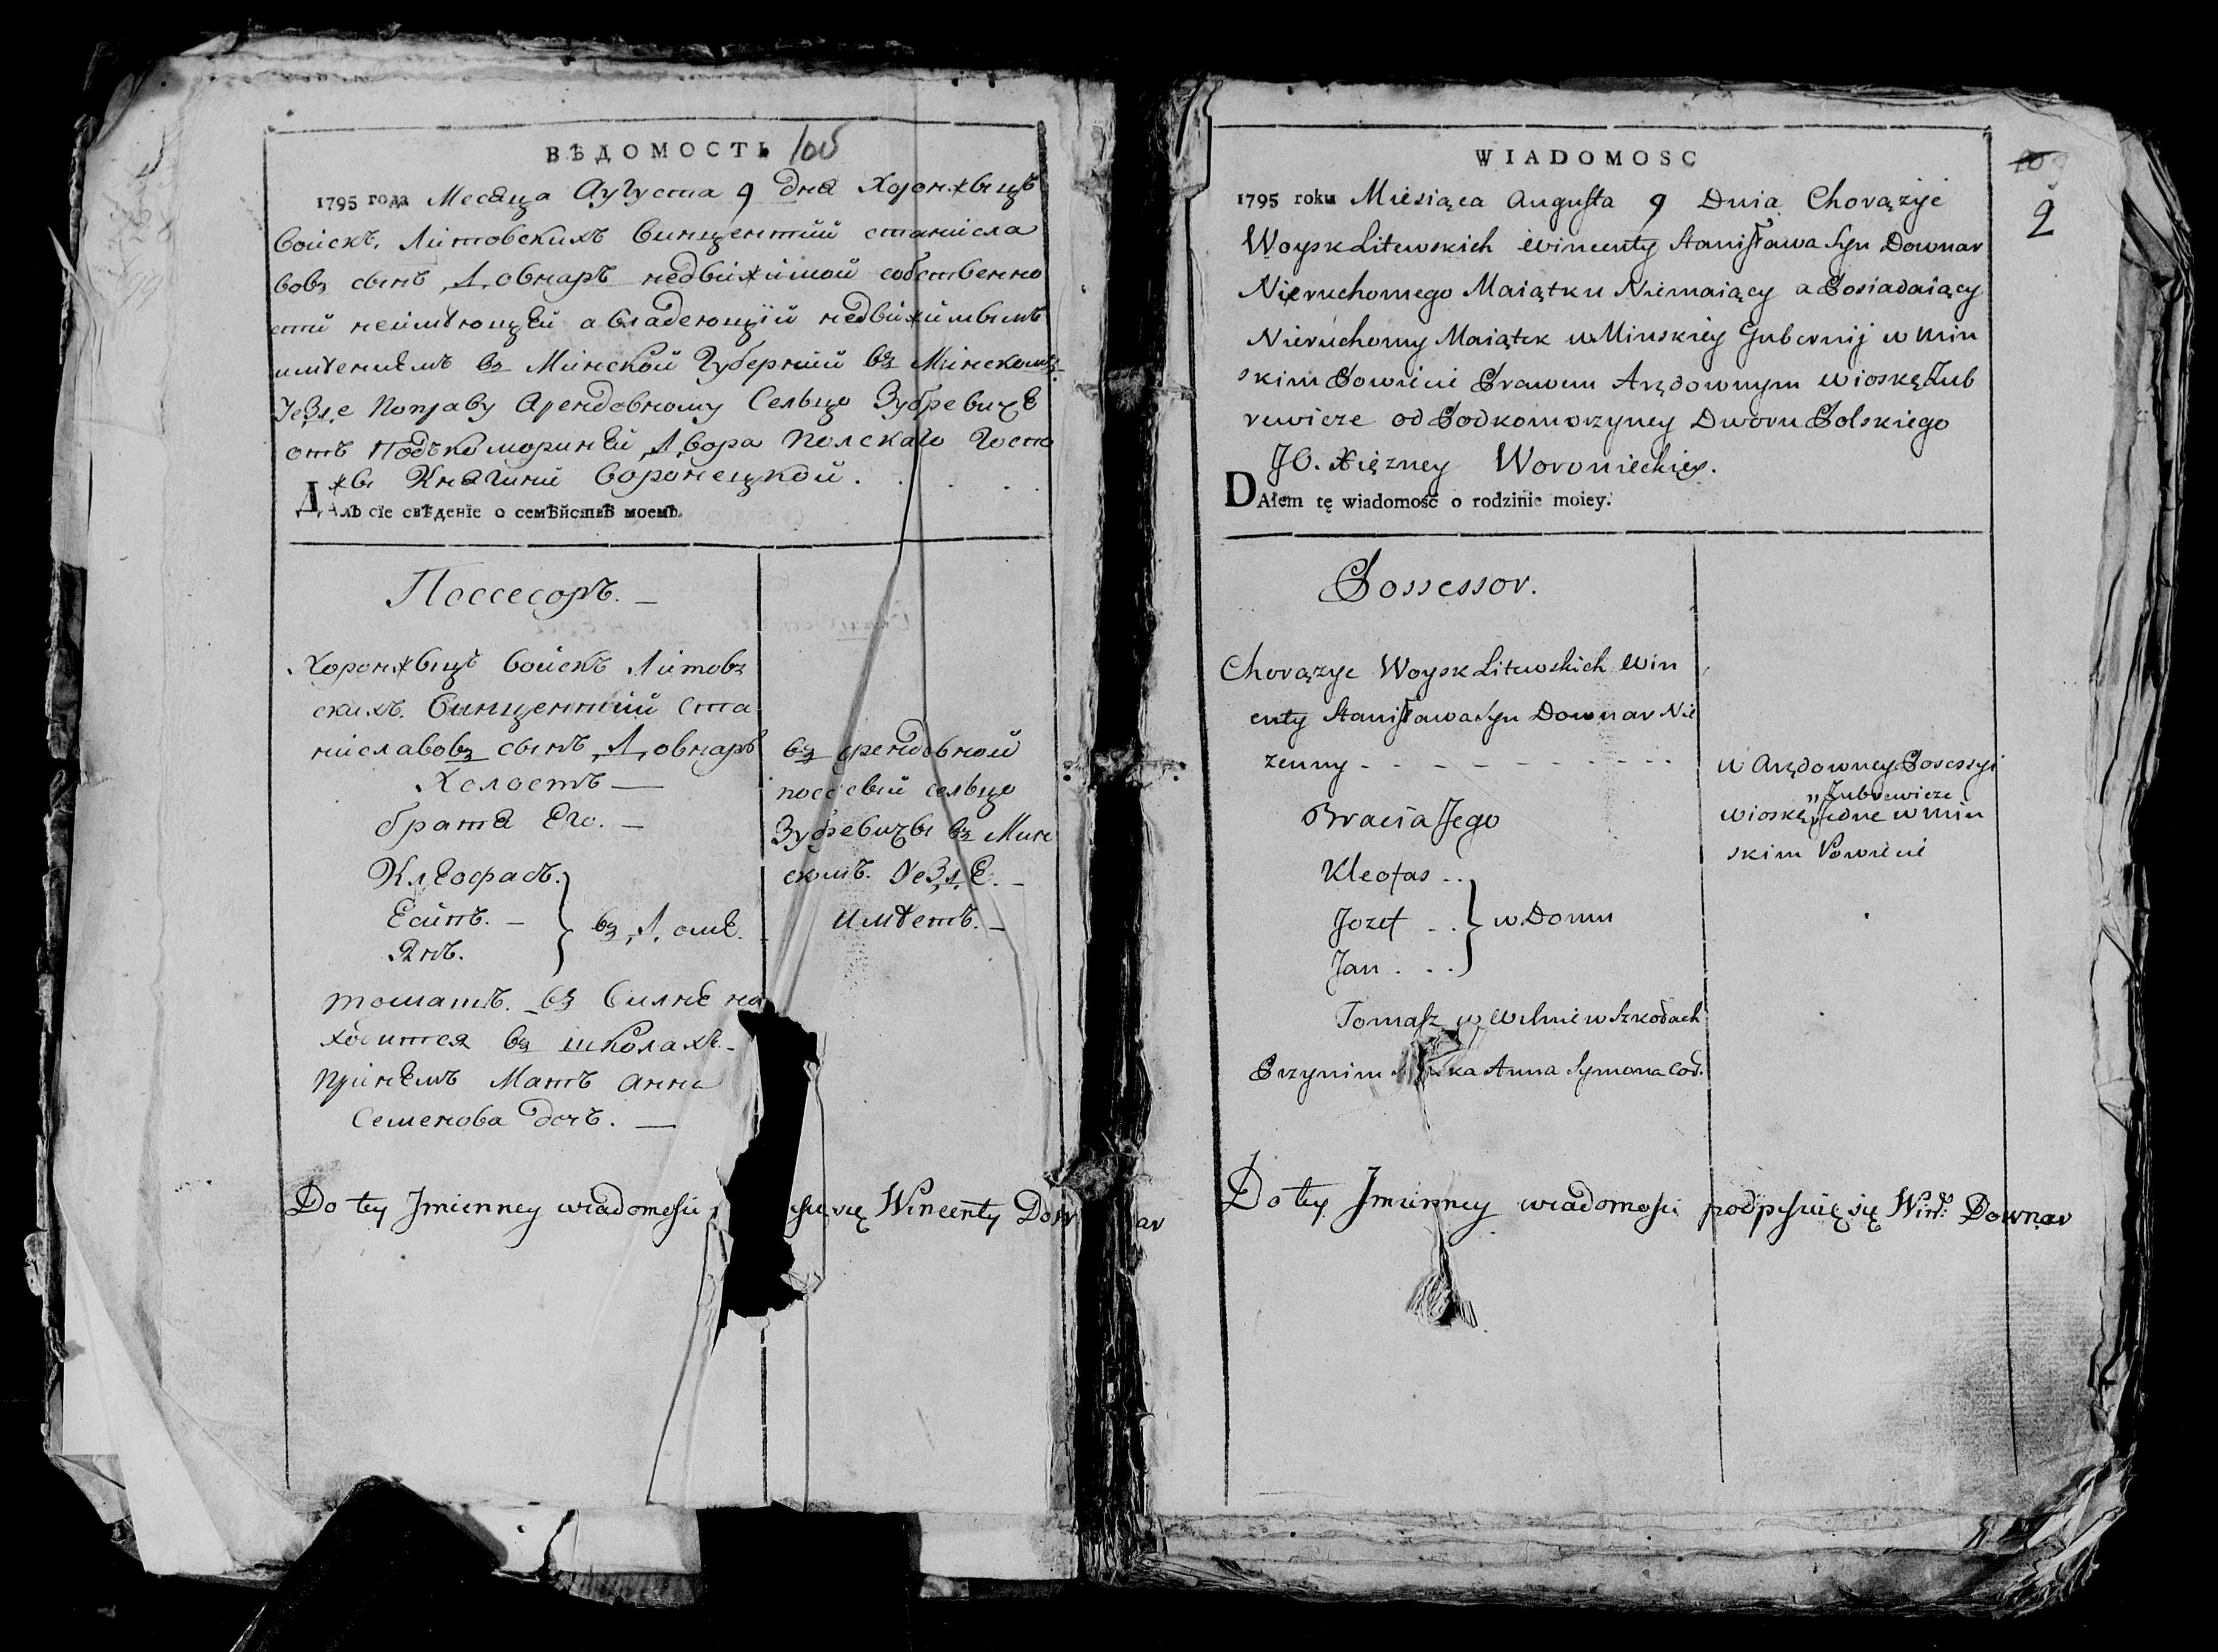 ВѢДОМОСТЬ
1795 года Месяца Аугуста 9 дня Хоронжвицъ
войскъ Литовскихъ Винцентий станисла
вовъ сынъ Довнаръ недвижимой собственно
сти неимѣющей а владеющий недвижимымъ
имѣниемъ въ Минской Губернии въ Минскомъ
Уезде поправу Арендовному Сельцо Зубревиче
отъ Подъкоморинъй Двора Полскаго Госпо
жы Княгини Воронецкой.
ДАлъ сїе свѣденїе о семѣйствѣ моемъ.
Поссесоръ. —
Хоронжвицъ войскъ Литовъ
скихъ Винцентий Ста
ниславовъ сынъ Довнаръ
Холостъ —
братя Его. —
Клеофасъ.
Есипъ. —
Янъ.
въ Доме.
томашъ. въ Вилне на
ходится въ школахъ. —
принемъ Мать Анна
Семенова дочъ. —
въ арендовной
поссевии сельцо
Зубревичы въ Мин
скомъ Уезде. —
имѣетъ. —
Do tey Jmienney wiadomości suię się Wincenty Downar
WIADOMOSC
9
1795 roku Miesiąca Augusta 9 Dnia Chorążyc
Woysk Litewskich Wincenty Stanisława Syn Downar
Nieruchomego Maiątku Niemaiący a Posiadaiący
Nieruchomy Maiątek w Minskiey Gubernij w Min
skim Powiecie Prawem Arędownym wioskę Zub
rewicze od Podkomorzyney Dworu Polskiego
JO. Xiężney Woronieckiey.
DAłem tę wiadomość o rodzinie moiey.
Possessor.
Chorążyc Woysk Litewskich Win
centy Stanisława Syn Downar Nie
żenny - - - - - - - - - - -
Bracia Jego
Kleofas . .
Jozef . .
Jan . . .
w Domu
Tomasz w Wilnie w Szkołach
Przynim Matka Anna Symona Cor.
w Arędowney Posessyi
Zubrewicze
wioskę Jedne w Min
skim Powiecie
Do tey Jmienney wiadomości podpisuię się Winc: Downar